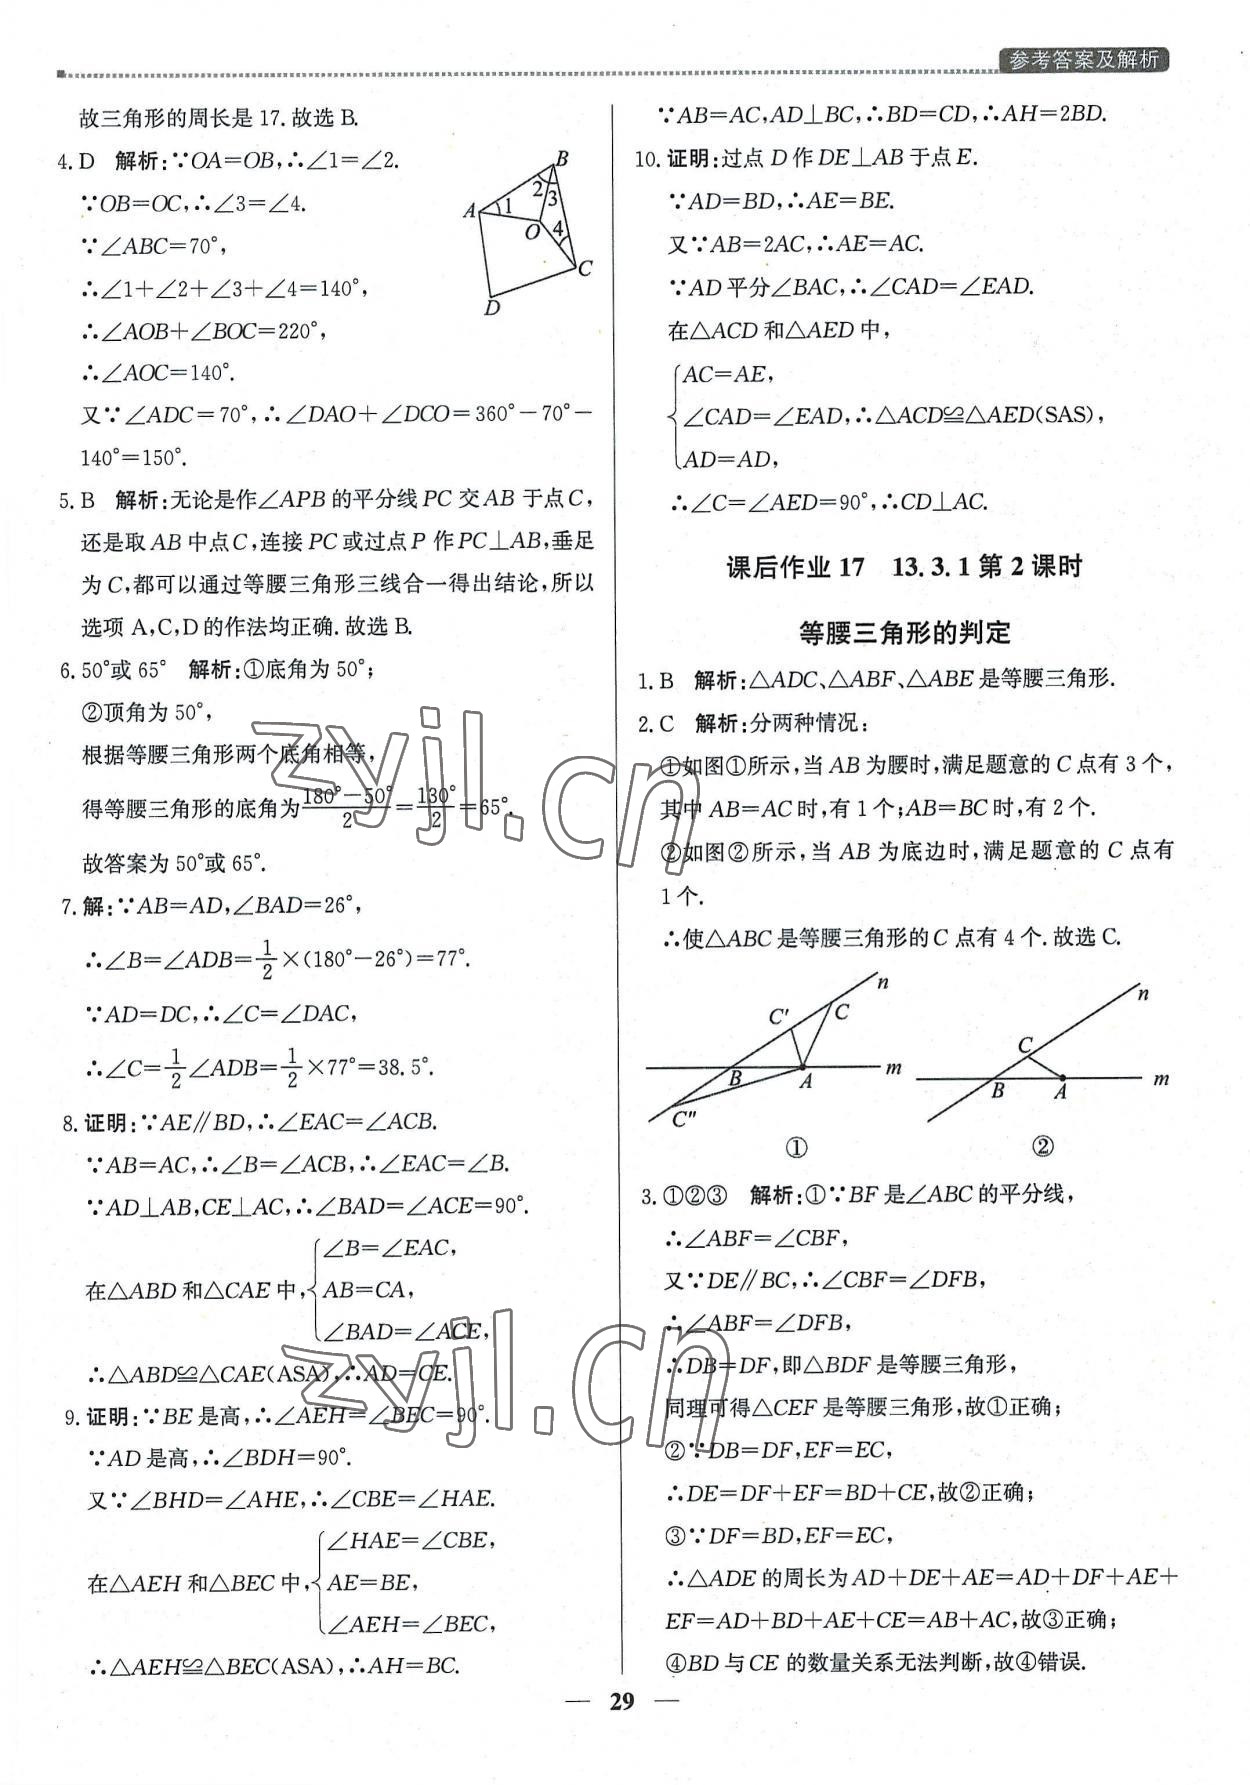 参考答案及解析
故三角形的周长是 17.故选 B.
4. D　解析:∵OA=OB,∴∠1=∠2.
∵OB=OC,∴∠3=∠4.
∵∠ABC=70°,
∴∠1+∠2+∠3+∠4=140°,
∴∠AOB+∠BOC=220°,
∴∠AOC=140°.
又∵∠ADC=70°,∴∠DAO+∠DCO=360°-70°-
140°=150°.
B
2
3
A
1
O
4
C
D
5. B　解析:无论是作∠APB 的平分线 PC 交 AB 于点 C,
还是取 AB 中点 C,连接 PC 或过点 P 作 PC⊥AB,垂足
为 C,都可以通过等腰三角形三线合一得出结论,所以
选项 A,C,D 的作法均正确.故选 B.
6. 50°或 65°　解析:①底角为 50°;
②顶角为 50°,
根据等腰三角形两个底角相等,
得等腰三角形的底角为(180°-50°)/2=130°/2=65°.
故答案为 50°或 65°.
7. 解:∵AB=AD,∠BAD=26°,
∴∠B=∠ADB=1/2×(180°-26°)=77°.
∵AD=DC,∴∠C=∠DAC,
∴∠C=1/2∠ADB=1/2×77°=38.5°.
8. 证明:∵AE∥BD,∴∠EAC=∠ACB.
∵AB=AC,∴∠B=∠ACB,∴∠EAC=∠B.
∵AD⊥AB,CE⊥AC,∴∠BAD=∠ACE=90°.
∠B=∠EAC,
在△ABD 和△CAE 中,{AB=CA,
∠BAD=∠ACE,
∴△ABD≌△CAE(ASA),∴AD=CE.
9. 证明:∵BE 是高,∴∠AEH=∠BEC=90°.
∵AD 是高,∴∠BDH=90°.
又∵∠BHD=∠AHE,∴∠CBE=∠HAE.
∠HAE=∠CBE,
在△AEH 和△BEC 中,{AE=BE,
∠AEH=∠BEC,
∴△AEH≌△BEC(ASA),∴AH=BC.
∵AB=AC,AD⊥BC,∴BD=CD,∴AH=2BD.
10. 证明:过点 D 作 DE⊥AB 于点 E.
∵AD=BD,∴AE=BE.
又∵AB=2AC,∴AE=AC.
∵AD 平分∠BAC,∴∠CAD=∠EAD.
在△ACD 和△AED 中,
AC=AE,
{∠CAD=∠EAD,∴△ACD≌△AED(SAS),
AD=AD,
∴∠C=∠AED=90°,∴CD⊥AC.
课后作业 17　13.3.1 第 2 课时
等腰三角形的判定
1. B　解析:△ADC、△ABF、△ABE 是等腰三角形.
2. C　解析:分两种情况:
①如图①所示,当 AB 为腰时,满足题意的 C 点有 3 个,
其中 AB=AC 时,有 1 个;AB=BC 时,有 2 个.
②如图②所示,当 AB 为底边时,满足题意的 C 点有
1 个.
∴使△ABC 是等腰三角形的 C 点有 4 个.故选 C.
n
C'
C
B
A
m
C"
①
n
C
B
A
m
②
3. ①②③　解析:①∵BF 是∠ABC 的平分线,
∴∠ABF=∠CBF,
又∵DE∥BC,∴∠CBF=∠DFB,
∴∠ABF=∠DFB,
∴DB=DF,即△BDF 是等腰三角形,
同理可得△CEF 是等腰三角形,故①正确;
②∵DB=DF,EF=EC,
∴DE=DF+EF=BD+CE,故②正确;
③∵DF=BD,EF=EC,
∴△ADE 的周长为 AD+DE+AE=AD+DF+AE+
EF=AD+BD+AE+CE=AB+AC,故③正确;
④BD 与 CE 的数量关系无法判断,故④错误.
— 29 —
zyjl.cn
zyjl.cn